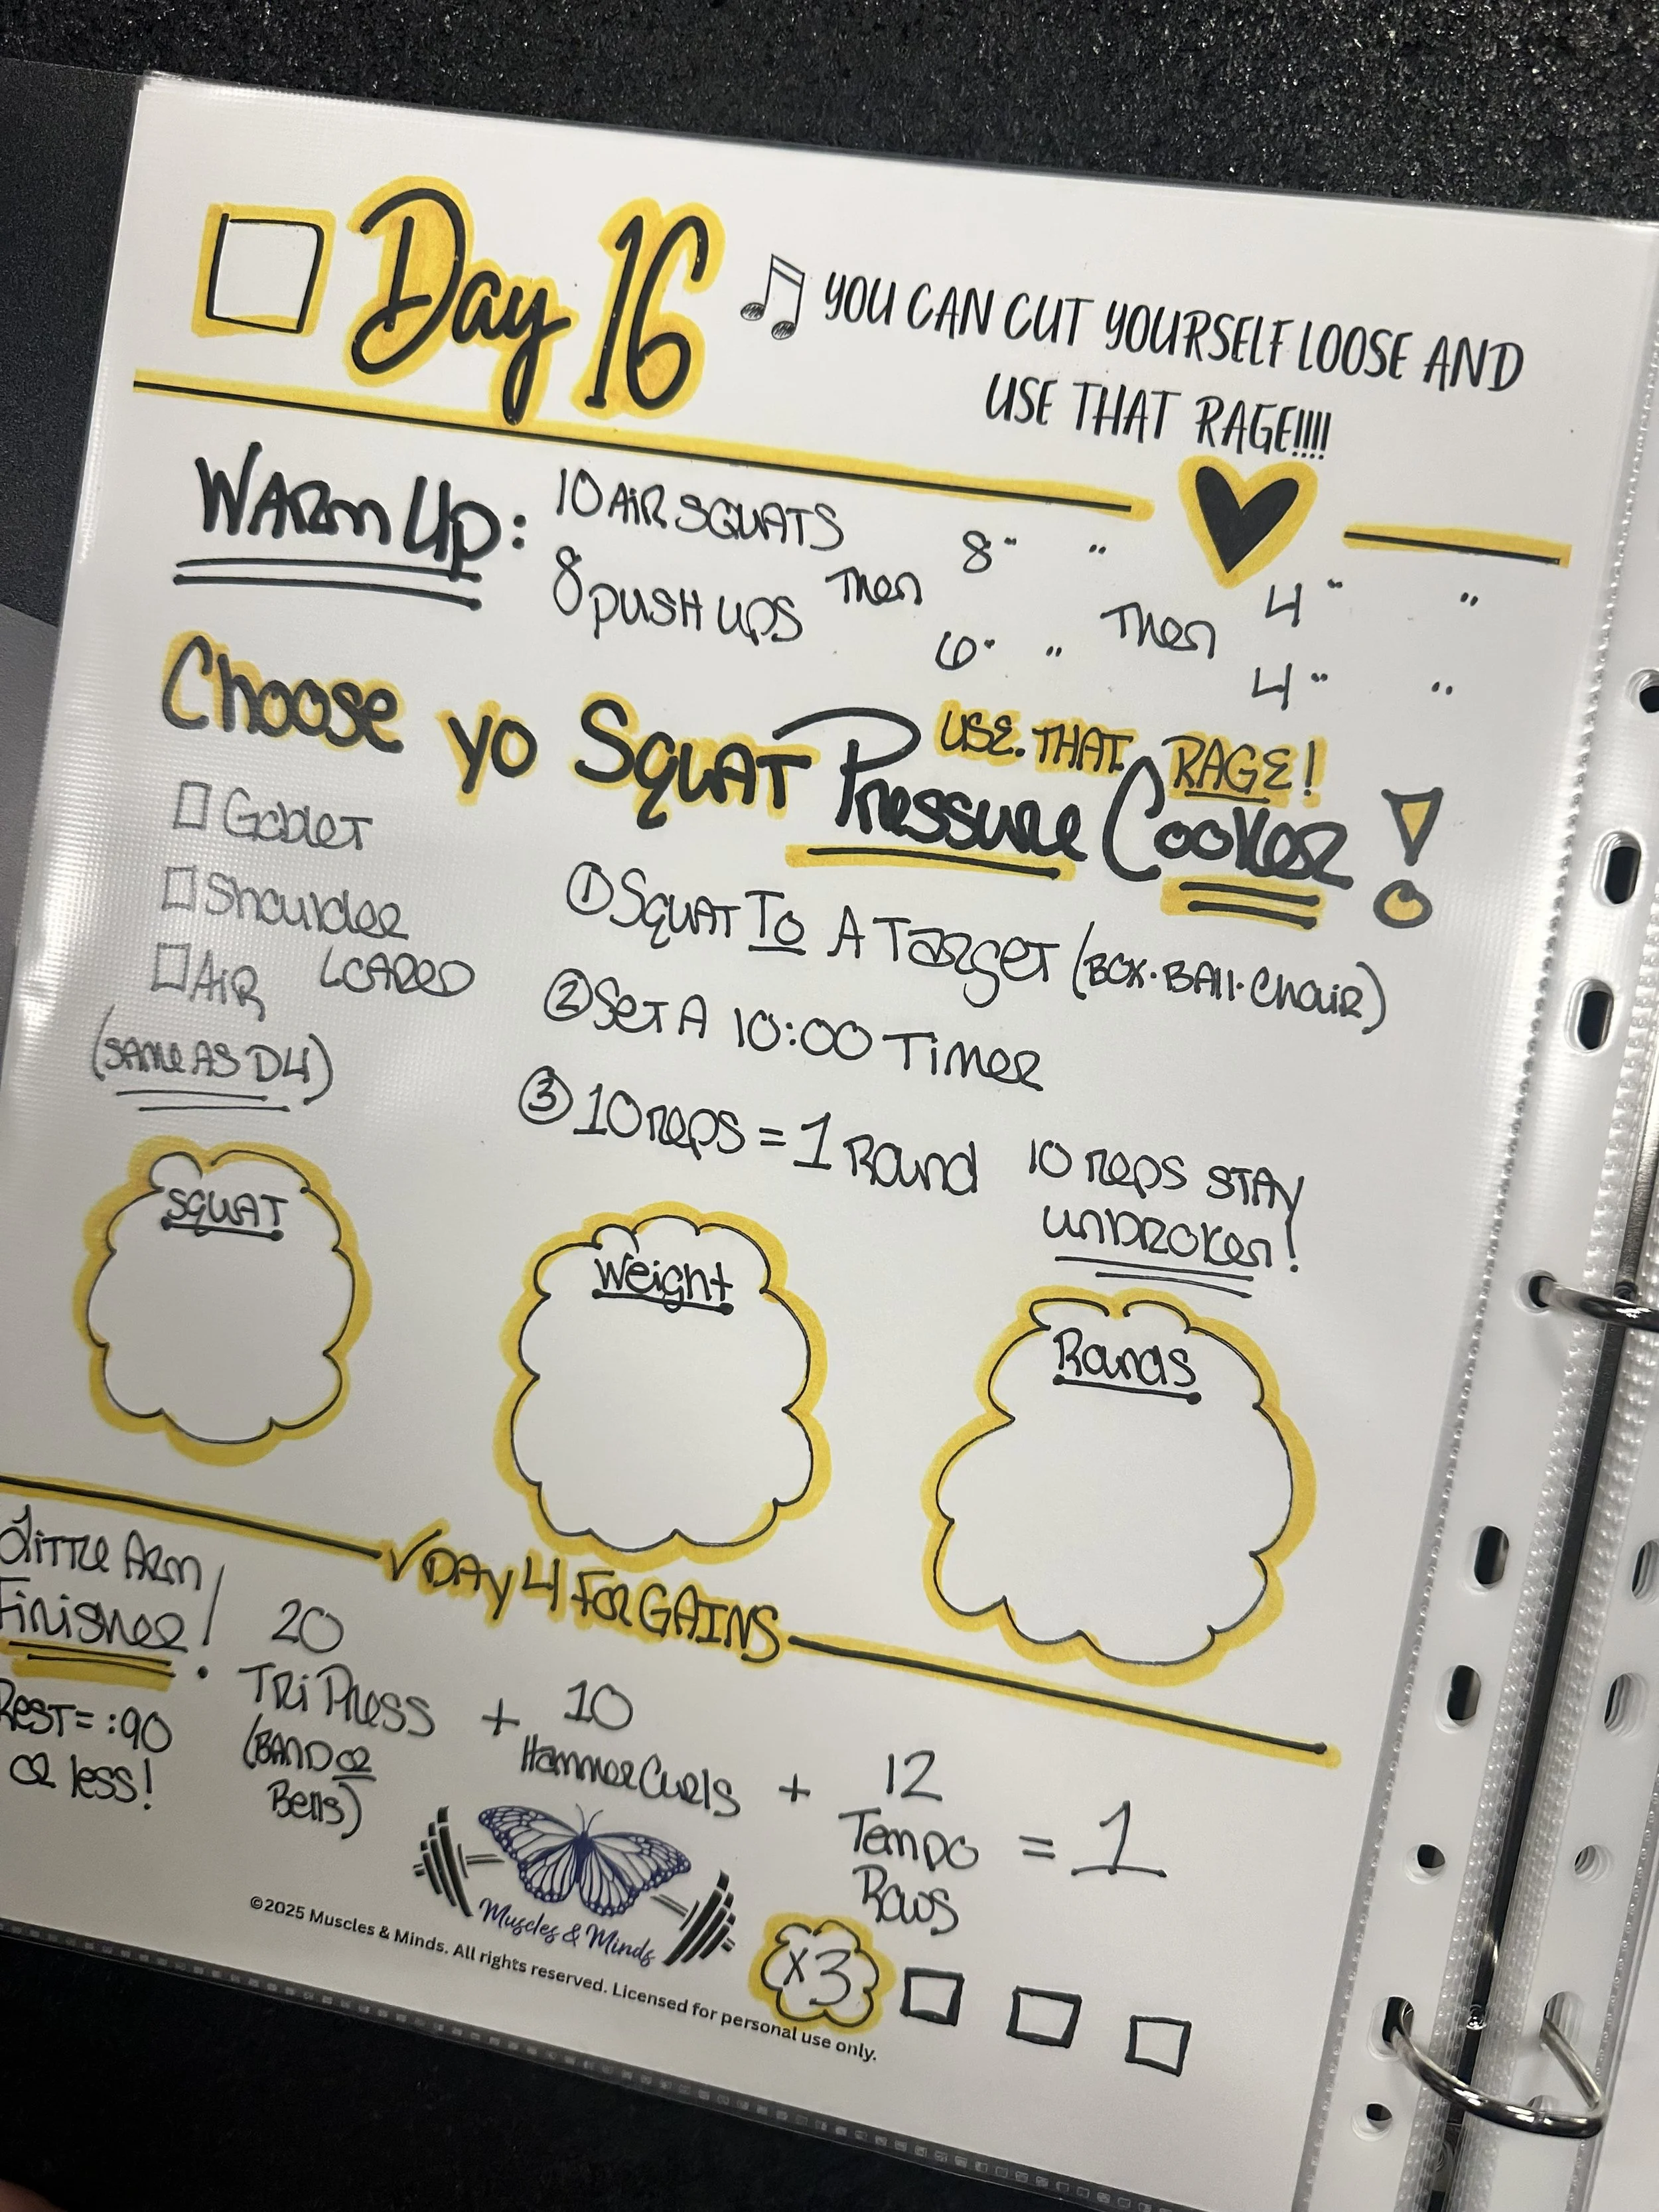 Day 16
YOU CAN CUT YOURSELF LOOSE AND
USE THAT RAGE!!!!
WARM UP: 10 AIR SQUATS 8 " " 4 " "
8 PUSH UPS Then 6 " " Then 4 " "
USE THAT RAGE!
Choose yo SQUAT Pressure Cooker!
Goblet
Shoulder
AIR LOADED
(SAME AS D4)
① SQUAT To A TARGET (BOX·BAll·Chair)
② Set A 10:00 Timer
③ 10 reps = 1 Round 10 reps STAY
UNBROKEN!
SQUAT
Weight
Rounds
√ DAY 4 FOR GAINS
Little Arm
Finisher!
REST = :90
OR less!
20
TRi Press
(BAND OR
Bells)
+
10
Hammer Curls
+
12
Tempo
Rows
= 1
X3
Muscles & Minds
©2025 Muscles & Minds. All rights reserved. Licensed for personal use only.